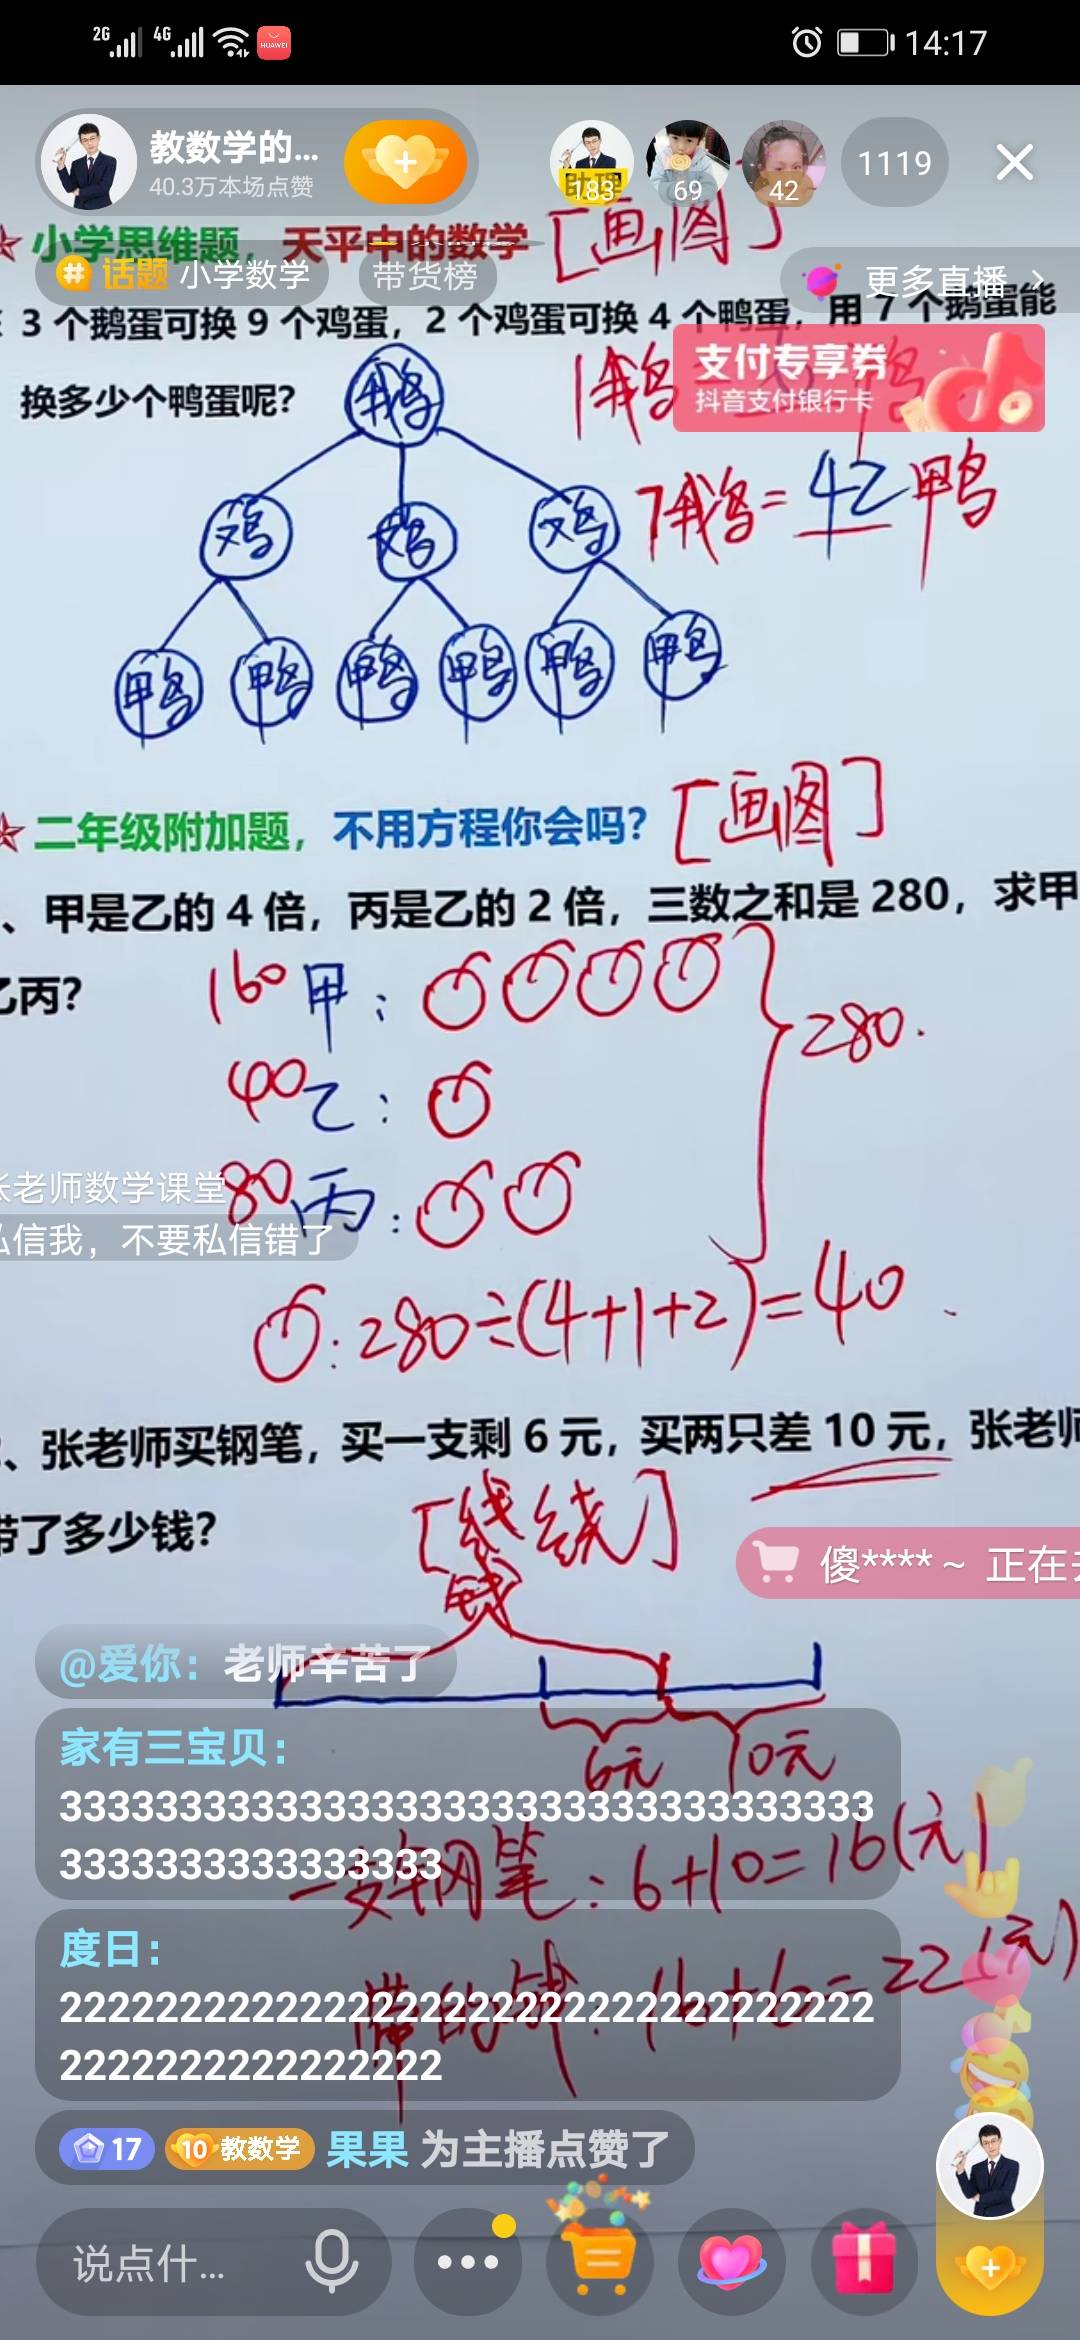 2G 4G HUAWEI 14:17
教数学的...
40.3万本场点赞
助理
183
69
42
1119
小学思维题，天平中的数学 [画图]
话题 小学数学
带货榜
更多直播
3 个鹅蛋可换 9 个鸡蛋，2 个鸡蛋可换 4 个鸭蛋，用 7 个鹅蛋能
换多少个鸭蛋呢？
支付专享券
抖音支付银行卡
1鹅
鹅
7鹅=42鸭
鸡 鸡 鸡
鸭 鸭 鸭 鸭 鸭 鸭
二年级附加题，不用方程你会吗？ [画图]
、甲是乙的 4 倍，丙是乙的 2 倍，三数之和是 280，求甲
乙丙？
160 甲：
280.
40 乙：
张老师数学课堂
80 丙：
私信我，不要私信错了
280÷(4+1+2)=40
、张老师买钢笔，买一支剩 6 元，买两只差 10 元，张老师
带了多少钱？
[线段]
钱
傻****～ 正在去
@爱你：老师辛苦了
6元 10元
家有三宝贝：
3333333333333333333333333333333333
3333333333333333
一支钢笔：6+10=16(元)
度日：
2222222222222222222222222222222222
2222222222222222
带的钱：16+6=22(元)
17 10 教数学 果果 为主播点赞了
说点什...